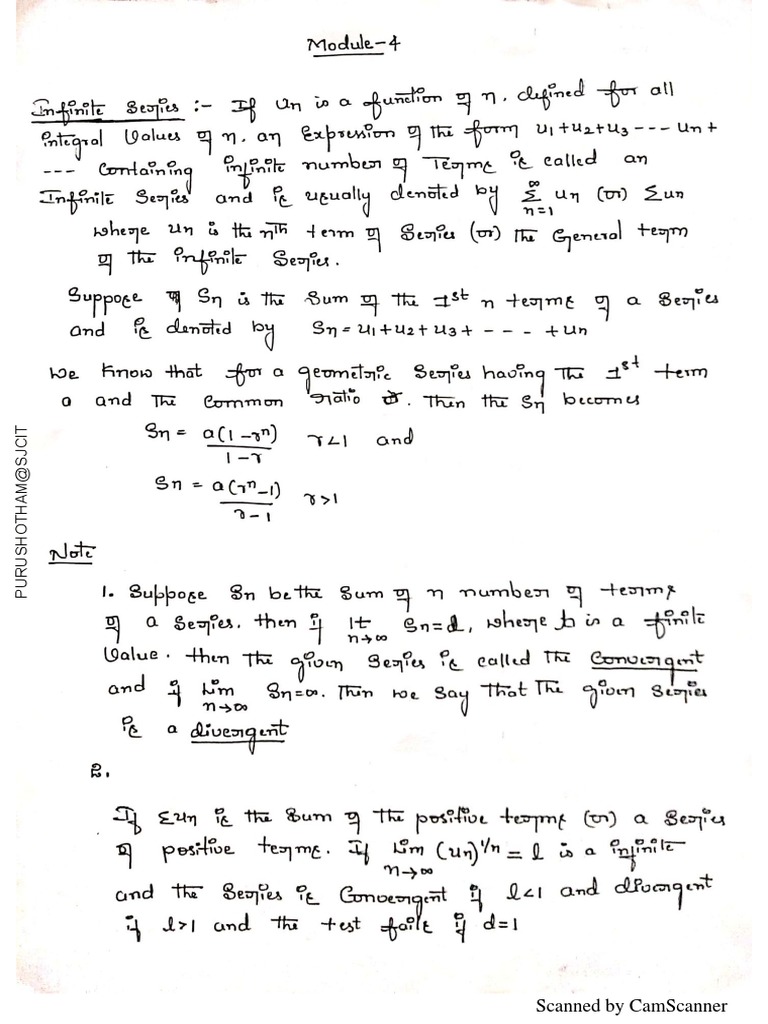 Module-4
Infinite Series :- If Un is a function of n. defined for all
integral Values of n. an Expression of the form u1+u2+u3 --- Un+
--- Containing infinite number of Terms is called an
Infinite Series and is usually denoted by ∞Σn=1 Un (or) Σun
where Un is the nth term of Series (or) The General term
of the infinite Series.
Suppose Sn is the Sum of the 1st n terms of a Series
and is denoted by Sn = u1+u2+u3+ - - - - +un
We Know that for a geometric Series having The 1st term
a and The Common ratio r. Then the Sn becomes
Sn = a(1-rⁿ)/1-r r<1 and
Sn = a(rⁿ-1)/r-1 r>1
Note
1. Suppose Sn be the Sum of n number of terms
of a Series. then if lt n→∞ Sn=l, where l is a finite
Value. then The given Series is called The Convergent
and if Lim n→∞ Sn=∞. Then we Say That The given Series
is a divergent
2.
If Σun is the Sum of The positive terms (or) a Series
of positive terms. If Lim n→∞ (un)^1/n = l is a infinite
and the Series is Convergent if l<1 and divergent
if l>1 and the test fails if d=1
PURUSHOTHAM@SJCIT
Scanned by CamScanner